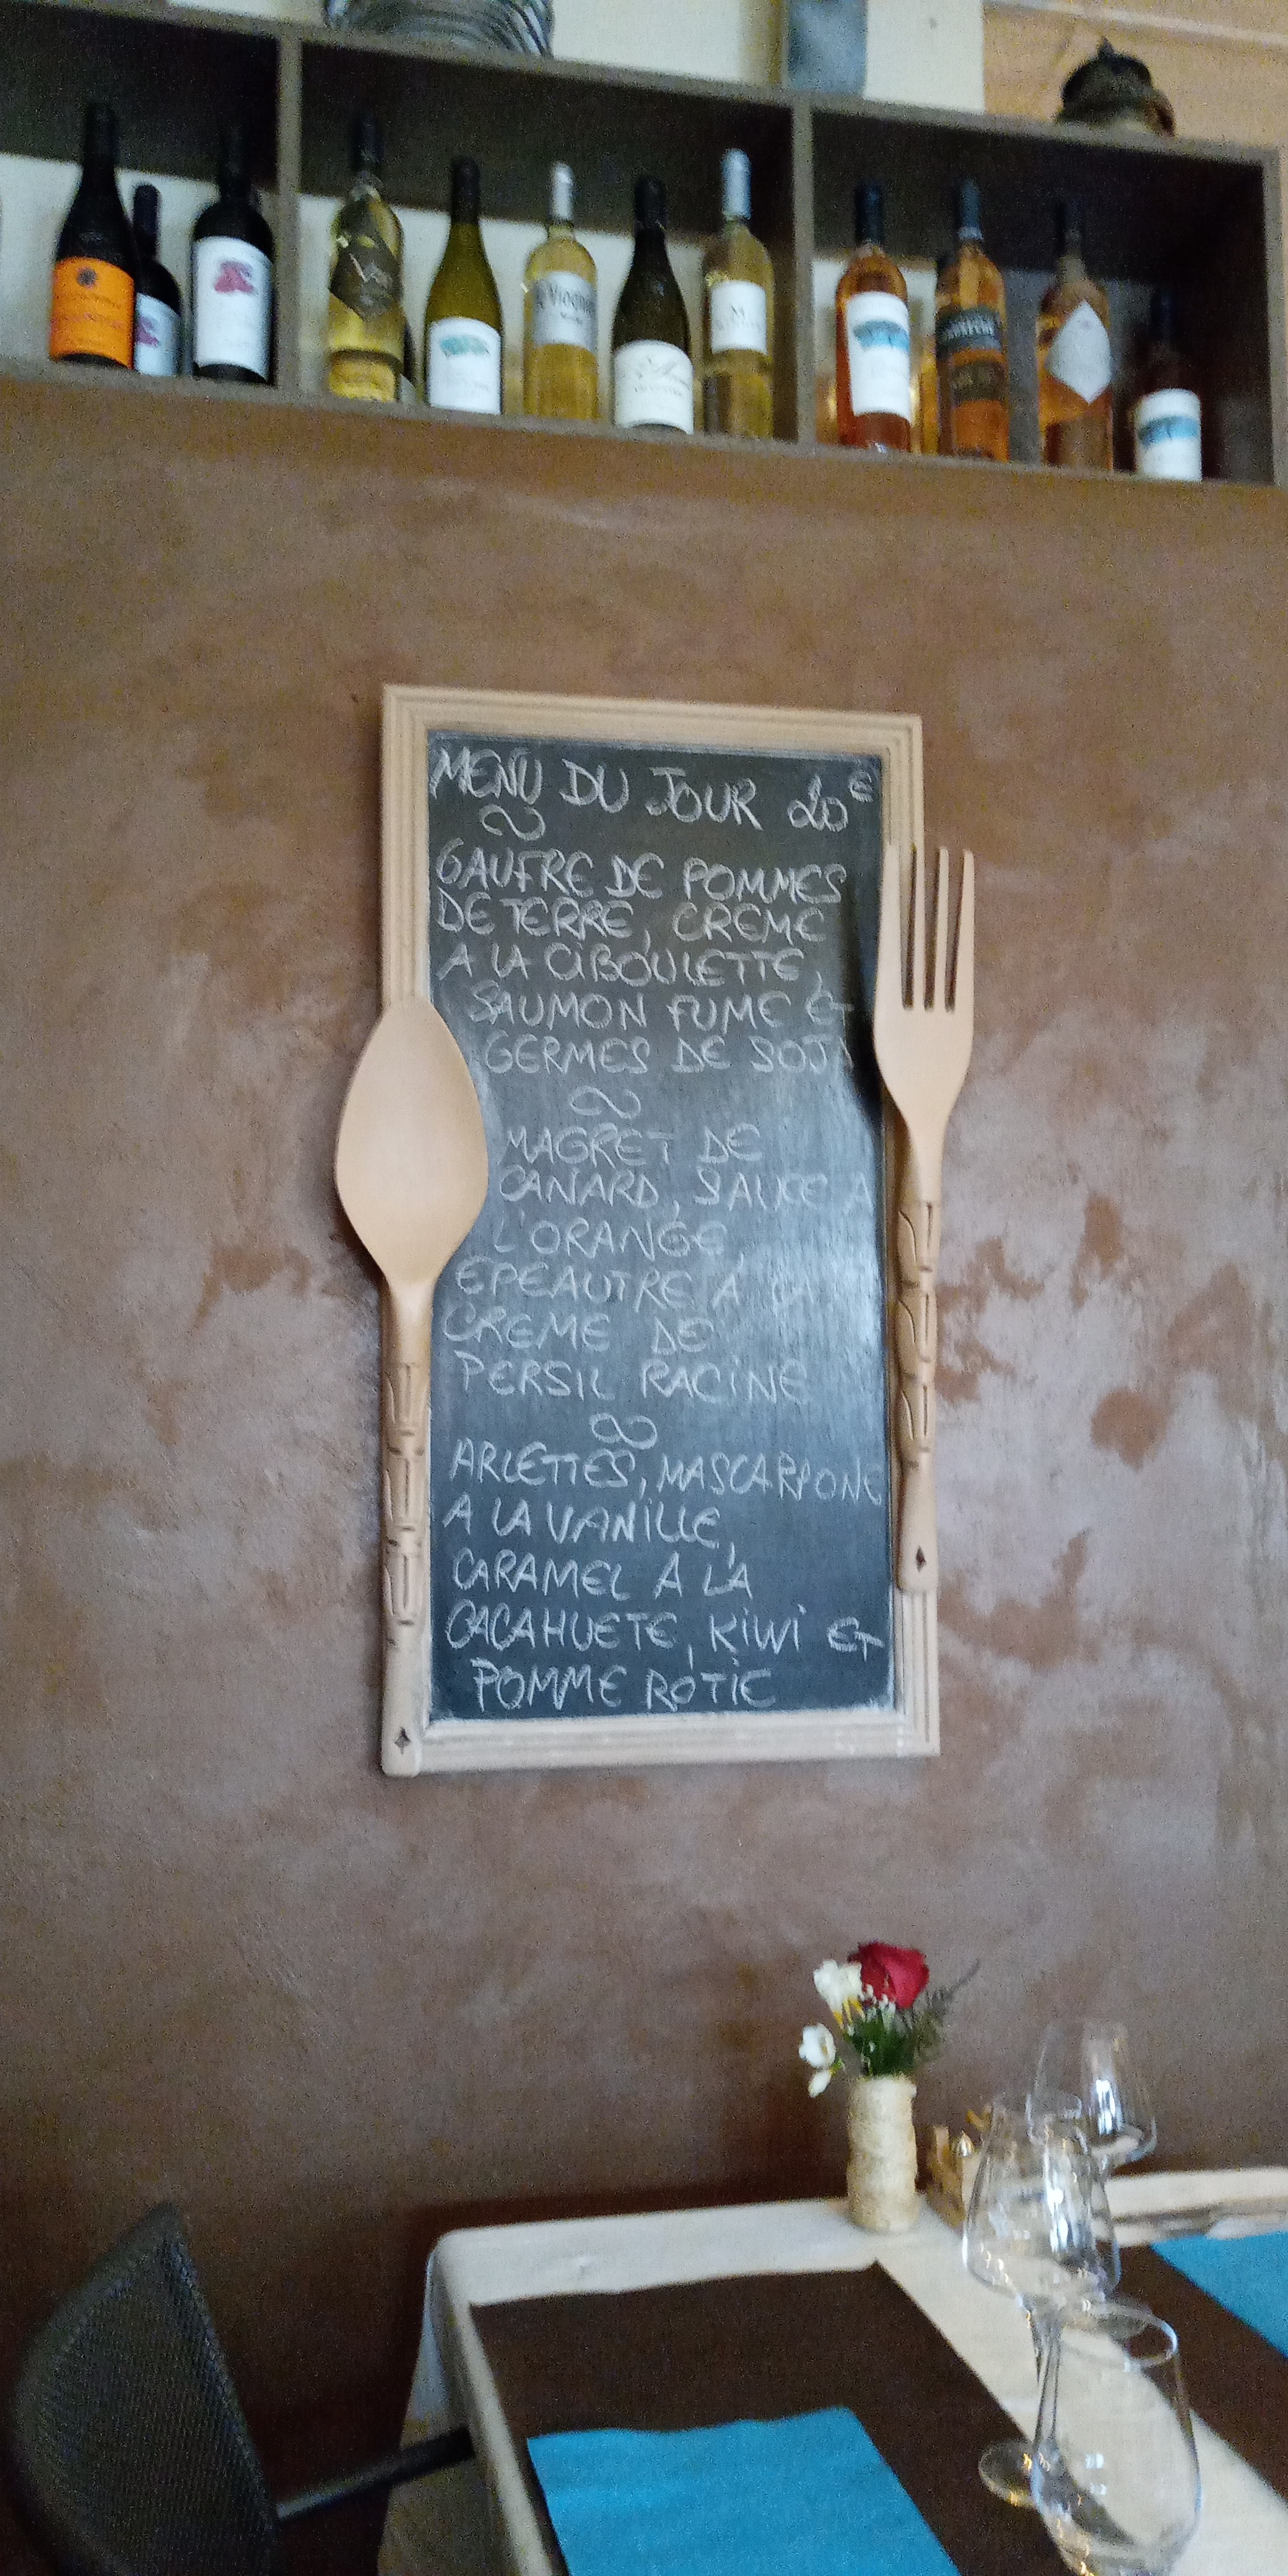 Viognier
MENU DU JOUR 20€
GAUFRE DE POMMES
DE TERRE, CREME
A LA CIBOULETTE,
SAUMON FUME ET
GERMES DE SOJA
MAGRET DE
CANARD, SAUCE A
L'ORANGE,
EPEAUTRE A LA
CREME DE
PERSIL RACINE
ARLETTES, MASCARPONE
A LA VANILLE,
CARAMEL A LA
CACAHUETE, KIWI ET
POMME ROTIE